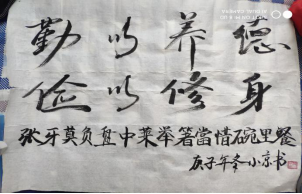 勤以养德
俭以修身
张牙莫负盘中菜举箸当惜碗里餐
庚子年冬小京书